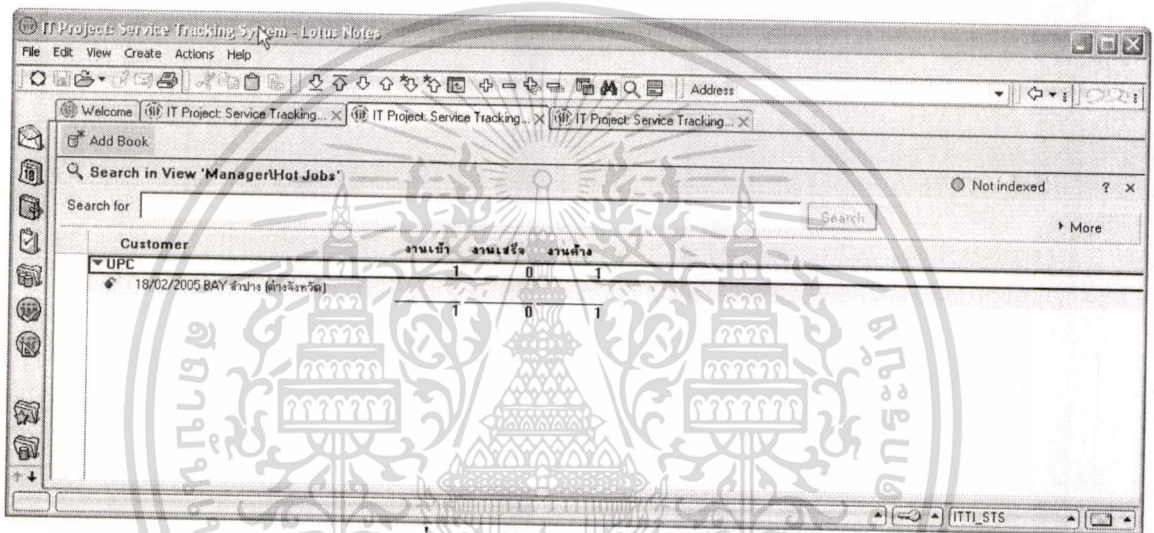 IT Project: Service Tracking System - Lotus Notes
File Edit View Create Actions Help
Address
Welcome IT Project: Service Tracking... IT Project: Service Tracking... IT Project: Service Tracking...
Add Book
Search in View 'Manager\Hot Jobs'
Not indexed ? ×
Search for
Search
More
Customer งานเข้า งานเสร็จ งานค้าง
UPC 1 0 1
18/02/2005 BAY ลำปาง [ต่างจังหวัด]
1 0 1
ITTI_STS